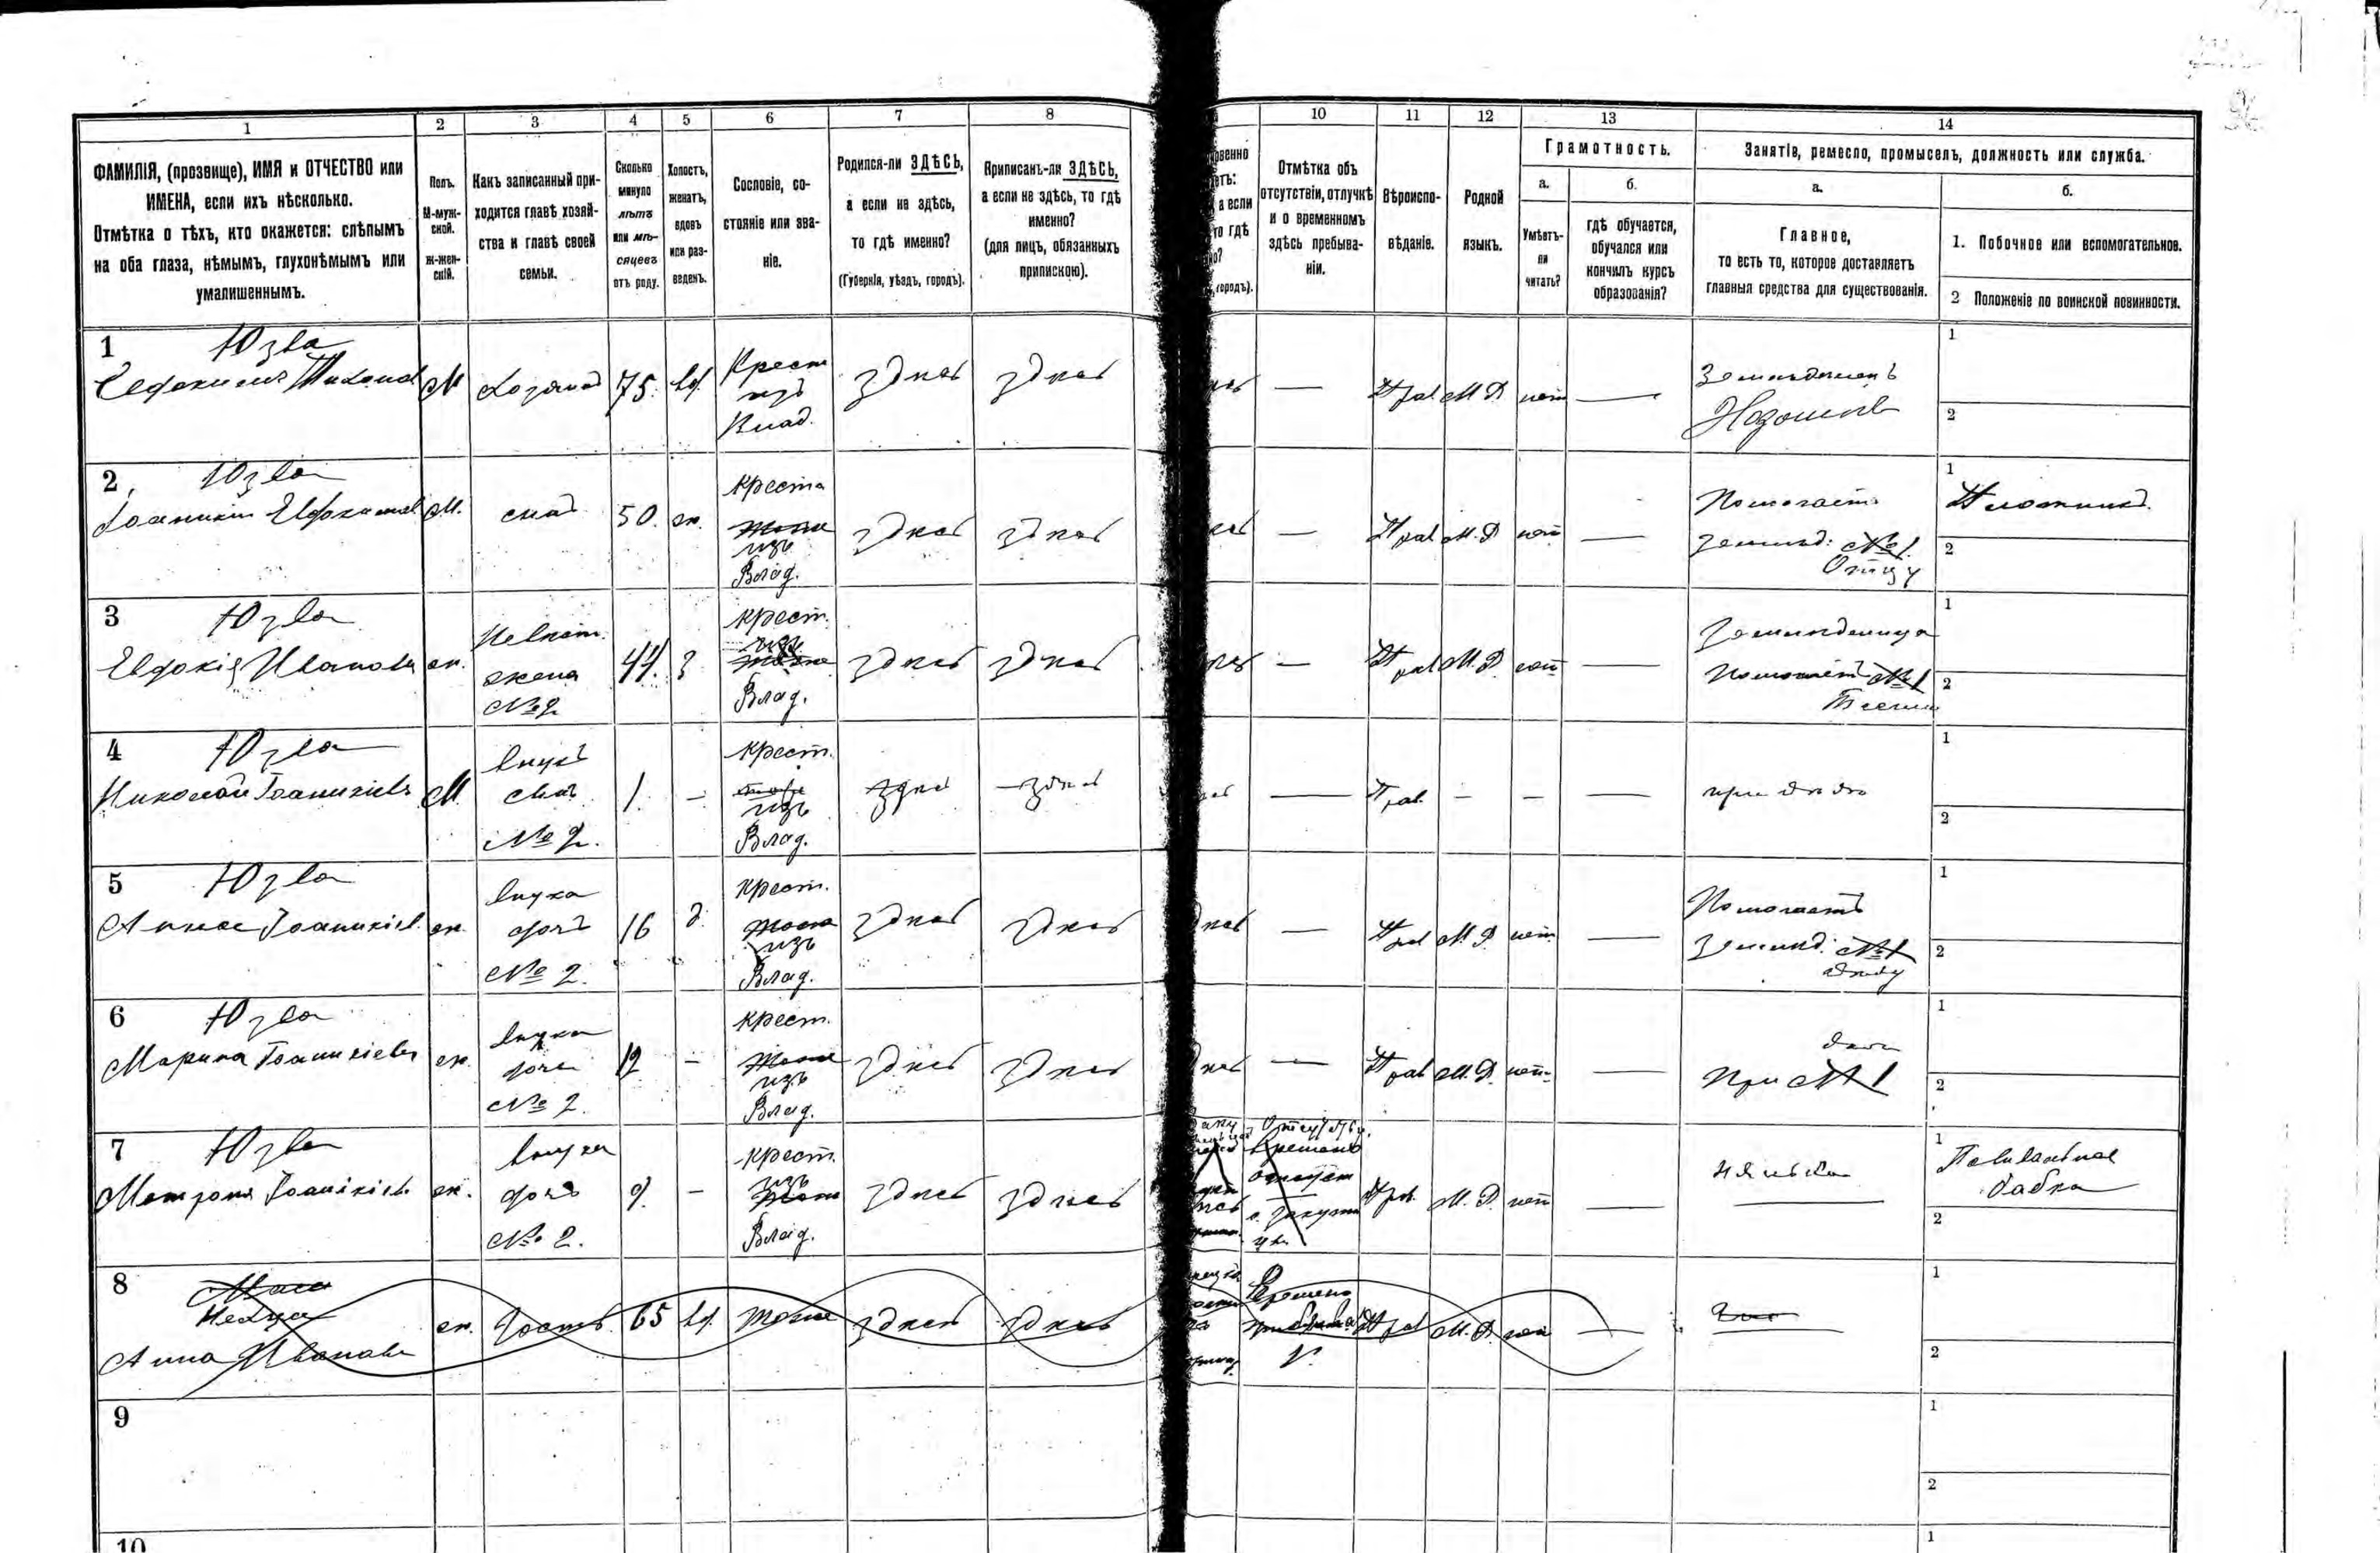 1 2 3 4 5 6 7 8 10 11 12 13 14
ФАМИЛІЯ, (прозвище), ИМЯ и ОТЧЕСТВО или
ИМЕНА, если ихъ нѣсколько.
Отмѣтка о тѣхъ, кто окажется: слѣпымъ
на оба глаза, нѣмымъ, глухонѣмымъ или
умалишеннымъ.
Полъ.
М-муж-
ской.
ж-жен-
скій.
Какъ записанный при-
ходится главѣ хозяй-
ства и главѣ своей
семьи.
Сколько
минуло
лѣтъ
или мѣ-
сяцевъ
отъ роду.
Холостъ,
женатъ,
вдовъ
или раз-
веденъ.
Сословіе, со-
стояніе или зва-
ніе.
Родился-ли ЗДѢСЬ,
а если не здѣсь,
то гдѣ именно?
(Губернія, уѣздъ, городъ).
Приписанъ-ли ЗДѢСЬ,
а если не здѣсь, то гдѣ
именно?
(для лицъ, обязанныхъ
припискою).
а если
городъ).
Отмѣтка объ
отсутствіи, отлучкѣ
и о временномъ
здѣсь пребыва-
ніи.
Вѣроиспо-
вѣданіе.
Родной
языкъ.
Грамотность.
а.
Умѣетъ-
ли
читать?
б.
гдѣ обучается,
обучался или
кончилъ курсъ
образованія?
Занятіе, ремесло, промыселъ, должность или служба.
а.
Главное,
то есть то, которое доставляетъ
главныя средства для существованія.
б.
1. Побочное или вспомогательное.
2 Положеніе по воинской повинности.
1 Юзва
М 75. вд.
Крест
изъ
Влад.
здѣсь здѣсь
— Прав М.Р. нѣт —
1
2
2 Юзва
Іоаникій Евдокимов М. сынъ 50. ж.
Крестя
изъ
Влад.
здѣсь здѣсь
— Прав М.Р. нѣт —
Помогаетъ
землед: №1.
Отцу
1 Плотникъ.
2
3 Юзва
Евдокія Иванова ж.
Невѣст.
жена
№ 2
44. з
Крест.
изъ
Влад.
здѣсь здѣсь
— Прав М.Р. нѣт —
Помогаетъ №1
1
2
4 Юзва
Николай Іоаникіевъ М.
внукъ
сынъ
№ 2.
1. —
Крест.
изъ
Влад.
здѣсь здѣсь
— Прав. — — —
при дѣдѣ
1
2
5 Юзва
Анна Іоаникіев. ж.
внука
дочь
№ 2.
16 д.
Крест.
изъ
Влад.
здѣсь здѣсь
— Прав М.Р. нѣт. —
Помогаетъ
землед: №1
дѣду
1
2
6 Юзва
Марина Іоаникіева ж.
внука
дочь
№ 2.
12 —
Крест.
изъ
Влад.
здѣсь здѣсь
— Прав М.Р. нѣт. —
При №1
1
2
7 Юзва
Матрона Іоаникіев. ж.
внука
дочь
№ 2.
9. —
Крест.
изъ
Влад.
здѣсь здѣсь
Времено
Прав. М.Р. нѣт —
нянька
1 Повивальная
бабка
2
8
Анна Иванова ж. Гость 65 вд. тоже здѣсь здѣсь
Времено
Прав М.Р. нѣт —
1
2
9
1
2
10
1